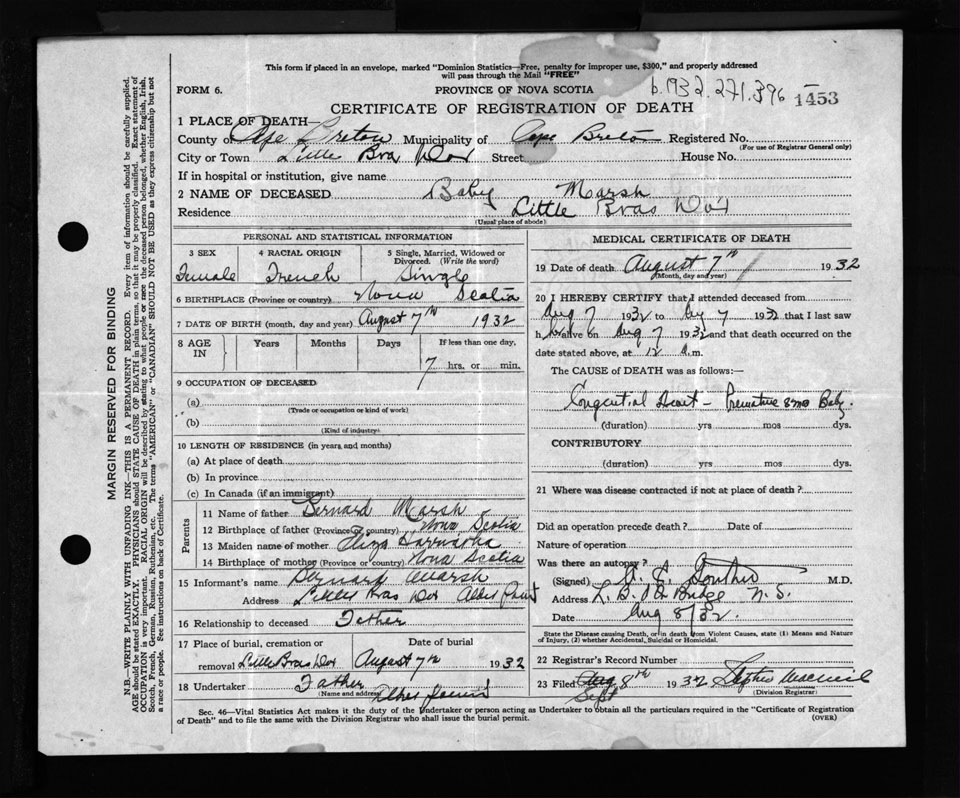 This form if placed in an envelope, marked "Dominion Statistics—Free, penalty for improper use, $300," and properly addressed
will pass through the Mail "FREE"
FORM 6. PROVINCE OF NOVA SCOTIA b.1932.271.396 1453
CERTIFICATE OF REGISTRATION OF DEATH
1 PLACE OF DEATH—
County of Cape Breton Municipality of Cape Breton Registered No.
(For use of Registrar General only)
City or Town Little Bras Dor Street House No.
If in hospital or institution, give name
2 NAME OF DECEASED Baby Marsh
Residence Little Bras Do'r
(Usual place of abode)
PERSONAL AND STATISTICAL INFORMATION
3 SEX 4 RACIAL ORIGIN 5 Single, Married, Widowed or Divorced. (Write the word)
Female French Single
6 BIRTHPLACE (Province or country) Nova Scotia
7 DATE OF BIRTH (month, day and year) August 7th 1932
8 AGE IN Years Months Days If less than one day,
7 hrs. or min.
9 OCCUPATION OF DECEASED
(a)
(Trade or occupation or kind of work)
(b)
(Kind of industry)
10 LENGTH OF RESIDENCE (in years and months)
(a) At place of death
(b) In province
(c) In Canada (if an immigrant)
Parents
11 Name of father Bernard Marsh
12 Birthplace of father (Province or country) Nova Scotia
13 Maiden name of mother Eliza
14 Birthplace of mother (Province or country) Nova Scotia
15 Informant's name Bernard Marsh
Address Little Bras Dor Alder Point
16 Relationship to deceased Father
17 Place of burial, cremation or Date of burial
removal Little Bras Dor August 7th 1932
18 Undertaker Father
(Name and address)
MEDICAL CERTIFICATE OF DEATH
19 Date of death August 7th 1932
(Month, day and year)
20 I HEREBY CERTIFY that I attended deceased from
Aug 7 1932 to Aug 7 1932 that I last saw
her alive on Aug 7 1932 and that death occurred on
date stated above, at 12 a.m.
The CAUSE of DEATH was as follows:—
Congential Heart — Premature 8 mo Baby.
(duration) yrs mos dys.
CONTRIBUTORY
(duration) yrs mos dys.
21 Where was disease contracted if not at place of death?
Did an operation precede death? Date of
Nature of operation
Was there an autopsy?
(Signed) M.D.
Address L. B. D'or Bridge N.S.
Date Aug 8/32.
State the Disease causing Death, or in death from Violent Causes, state (1) Means and Nature
of Injury, (2) whether Accidental, Suicidal or Homicidal.
22 Registrar's Record Number
23 Filed Aug 8th 1932 Stephen
Sept
(Division Registrar)
Sec. 46—Vital Statistics Act makes it the duty of the Undertaker or person acting as Undertaker to obtain all the particulars required in the "Certificate of Registration
of Death" and to file the same with the Division Registrar who shall issue the burial permit. (OVER)
MARGIN RESERVED FOR BINDING
N.B.—WRITE PLAINLY WITH UNFADING INK—THIS IS A PERMANENT RECORD. Every item of information should be carefully supplied.
AGE should be stated EXACTLY. PHYSICIANS should STATE CAUSE OF DEATH in plain terms, so that it may be properly classified. Exact statement of
OCCUPATION is very important. RACIAL ORIGIN will be described by stating to what people or race the deceased person belonged, whether English, Irish,
Scotch, French, German, Russian, Ruthenian, etc. The terms "AMERICAN" or "CANADIAN" SHOULD NOT BE USED as they express citizenship but not
a race or people. See instructions on back of Certificate.